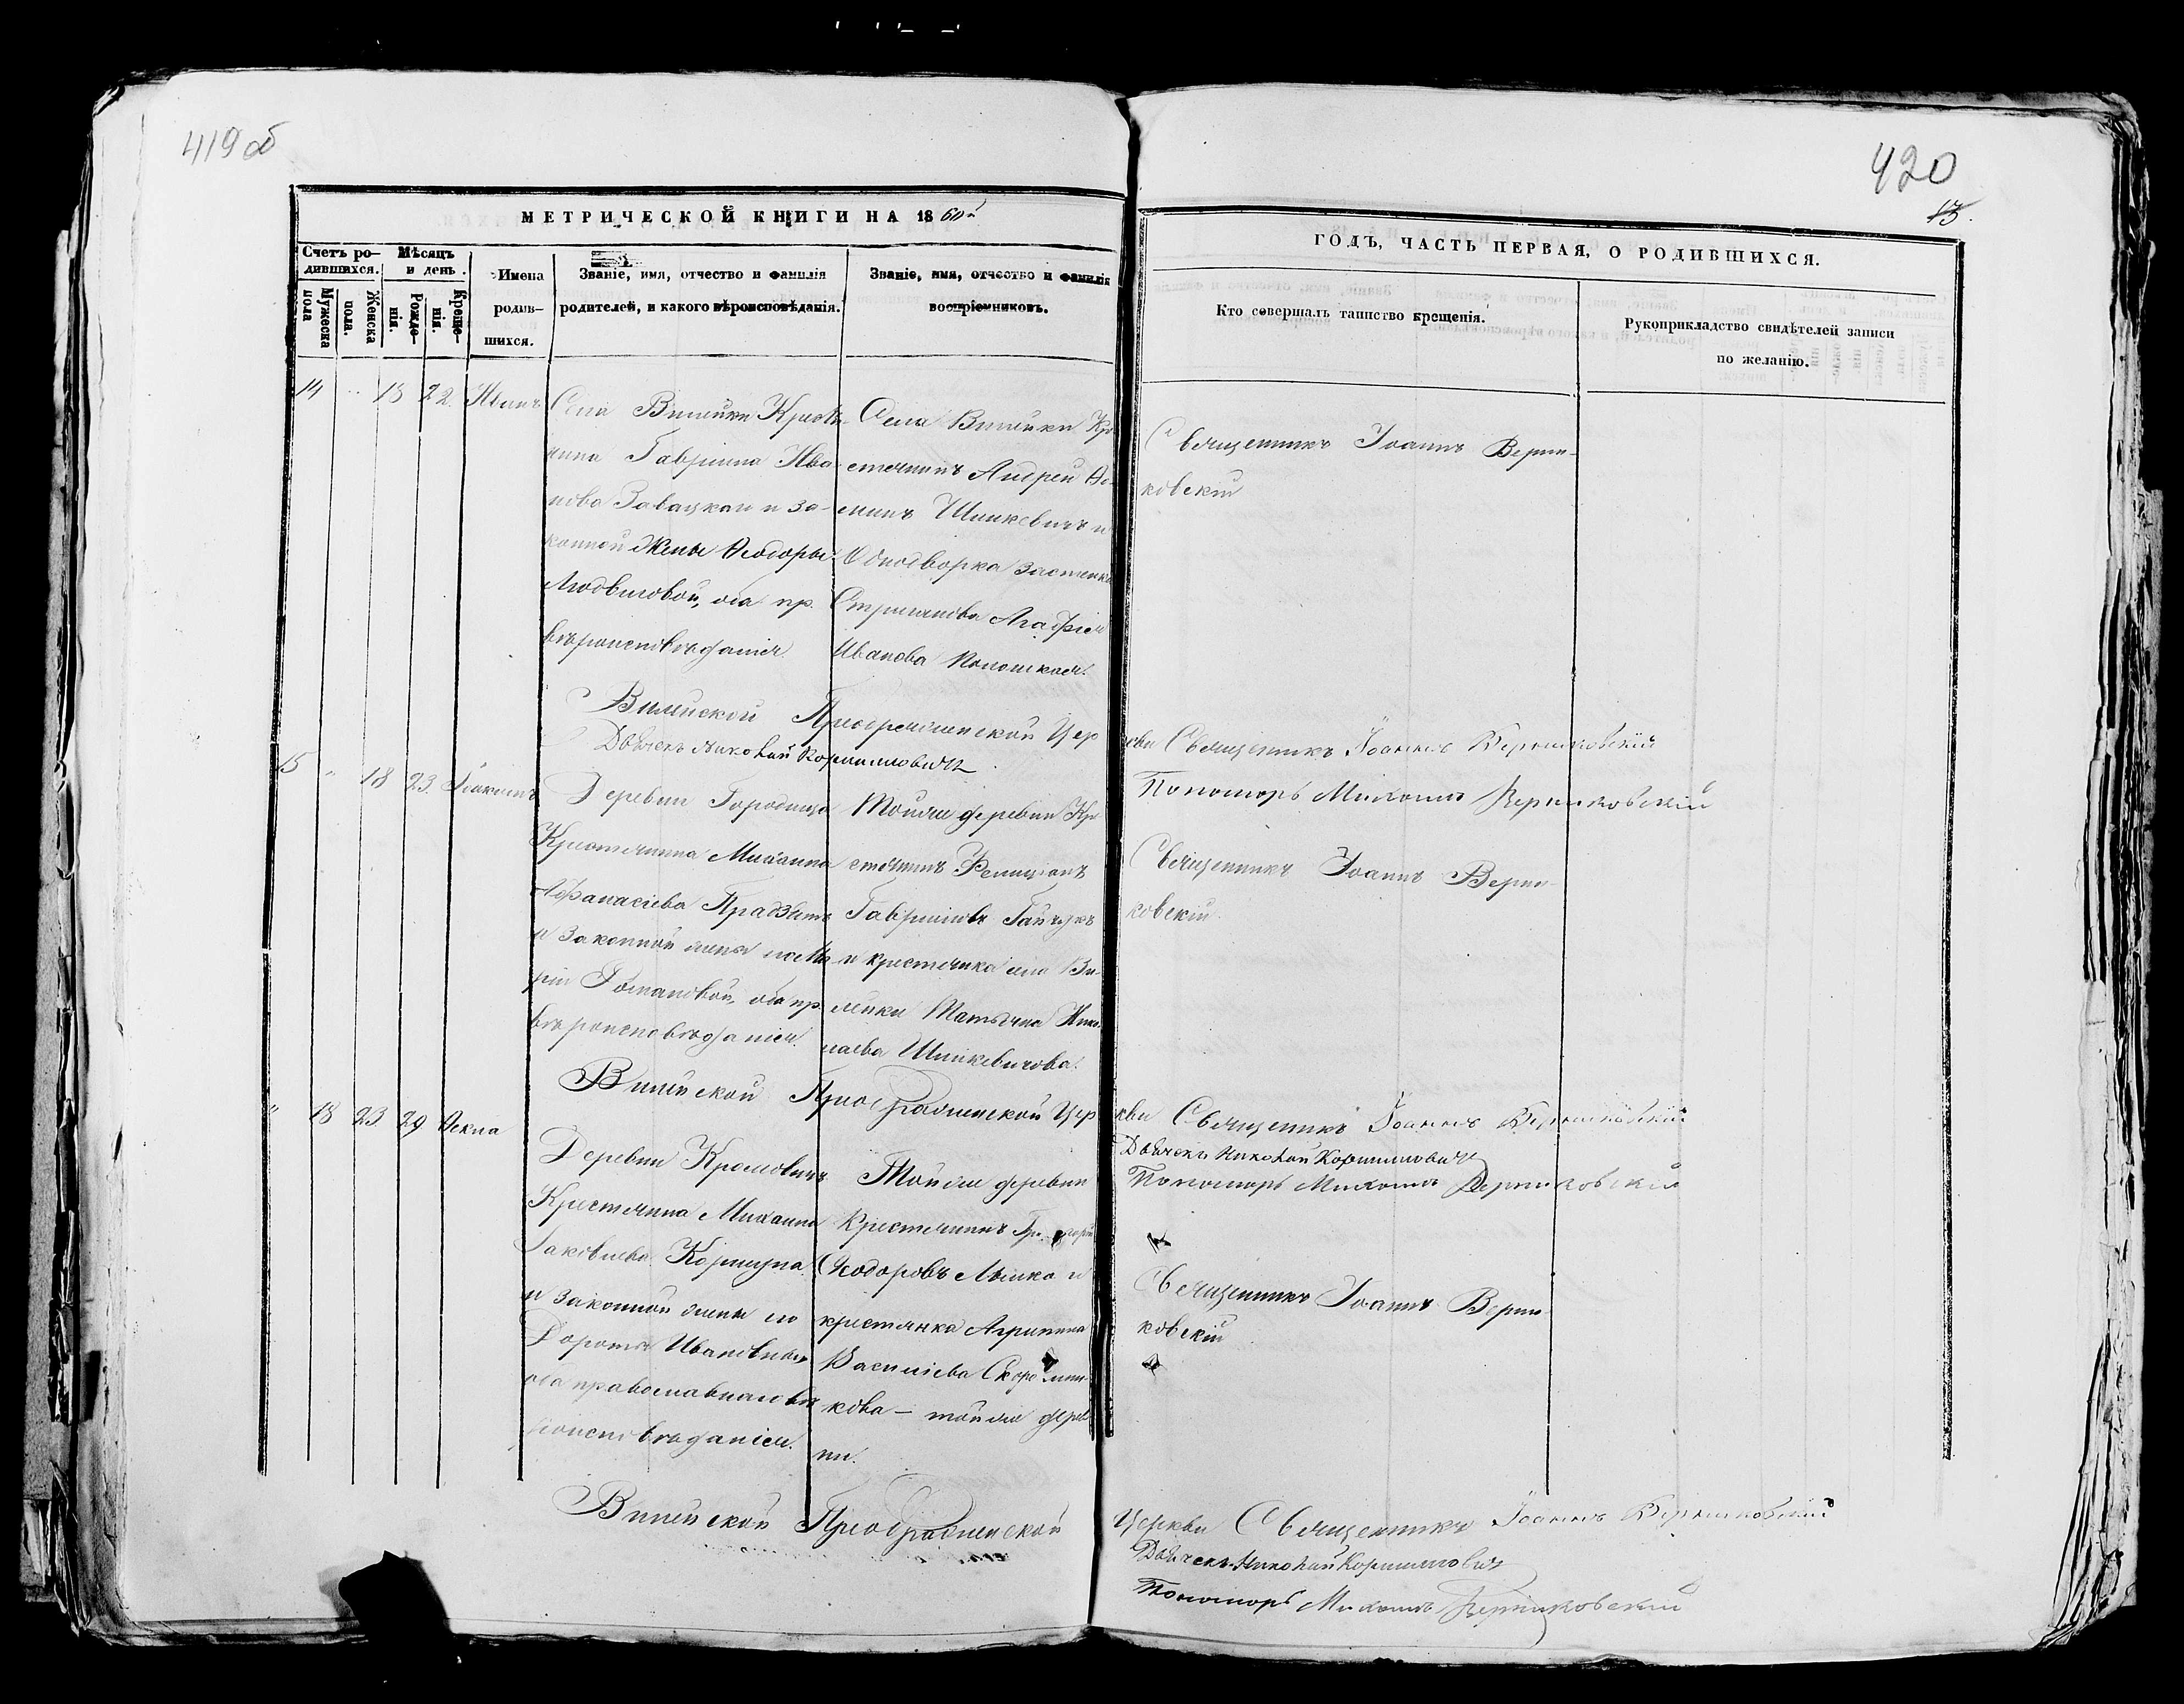 419 об
420
13.
МЕТРИЧЕСКОЙ КНИГИ НА 1860й
ГОДЪ, ЧАСТЬ ПЕРВАЯ, О РОДИВШИХСЯ.
Счетъ ро-
дившихся.
Мужеска
пола
Женска
пола.
Мѣсяцъ
и день.
Рожде-
нія.
Креще-
нія.
Имена
родив-
шихся.
Званіе, имя, отчество и фамилія
родителей, и какого вѣроисповѣданія.
Званіе, имя, отчество и фамилія
воспріемниковъ.
Кто совершалъ таинство крещенія.
Рукоприкладство свидѣтелей записи
по желанію.
14 15 22. Иванъ
Села Вилейки Кресть-
янина Гавріила Ива-
нова Завацкаи и за-
конной жены Ѳеодоры
Людвиговой, оба пр.
вѣроисповѣданія.
Села Вилейки Кре-
стянинъ Андрей
Шишкевичъ и
Однодворка застенка
Агафія
Иванова
Священникъ Іоаннъ Верни-
ковскій
Вилейской Преображенской Цер
кви Священникъ Іоаннъ Верниковскій
Дьячекъ Николай Корнилловичъ
Пономарь Михаилъ Верниковскій
15 " 18 23. Іоакимъ
Деревни Городища
Крестянина Михаила
Афанасіева
и законной жены его Ма-
ріи Романовой, оба пр.
вѣроисповѣданія.
Тойже деревни Кре-
стянинъ
Гавріиловъ
и крестянка села Ви-
лейки Татьяна Нико-
лаева Шишкевичова.
Священникъ Іоаннъ Верни-
ковскій.
Вилейской Преображенской Цер
кви Священникъ Іоаннъ Верниковскій
Дьячекъ Николай Корнилловичъ
Пономарь Михаилъ Верниковскій
" 18 23 29 Ѳекла
Деревни
Крестянина Михаила
Іаковлева Коршуна
и законной жены его
Ивановны
оба православнаго вѣ
роисповѣданія.
Тойже деревни
Крестянинъ Григорій
Ѳеодоровъ и
крестянка Агрипина
Василіева
кова — тойже дерев
ни.
Священникъ Іоаннъ Верни-
ковскій
Вилейской Преображенской
Церкви Священникъ Іоаннъ Верниковскій
Дьячекъ Николай Корнилловичъ
Пономарь Михаилъ Верниковскій